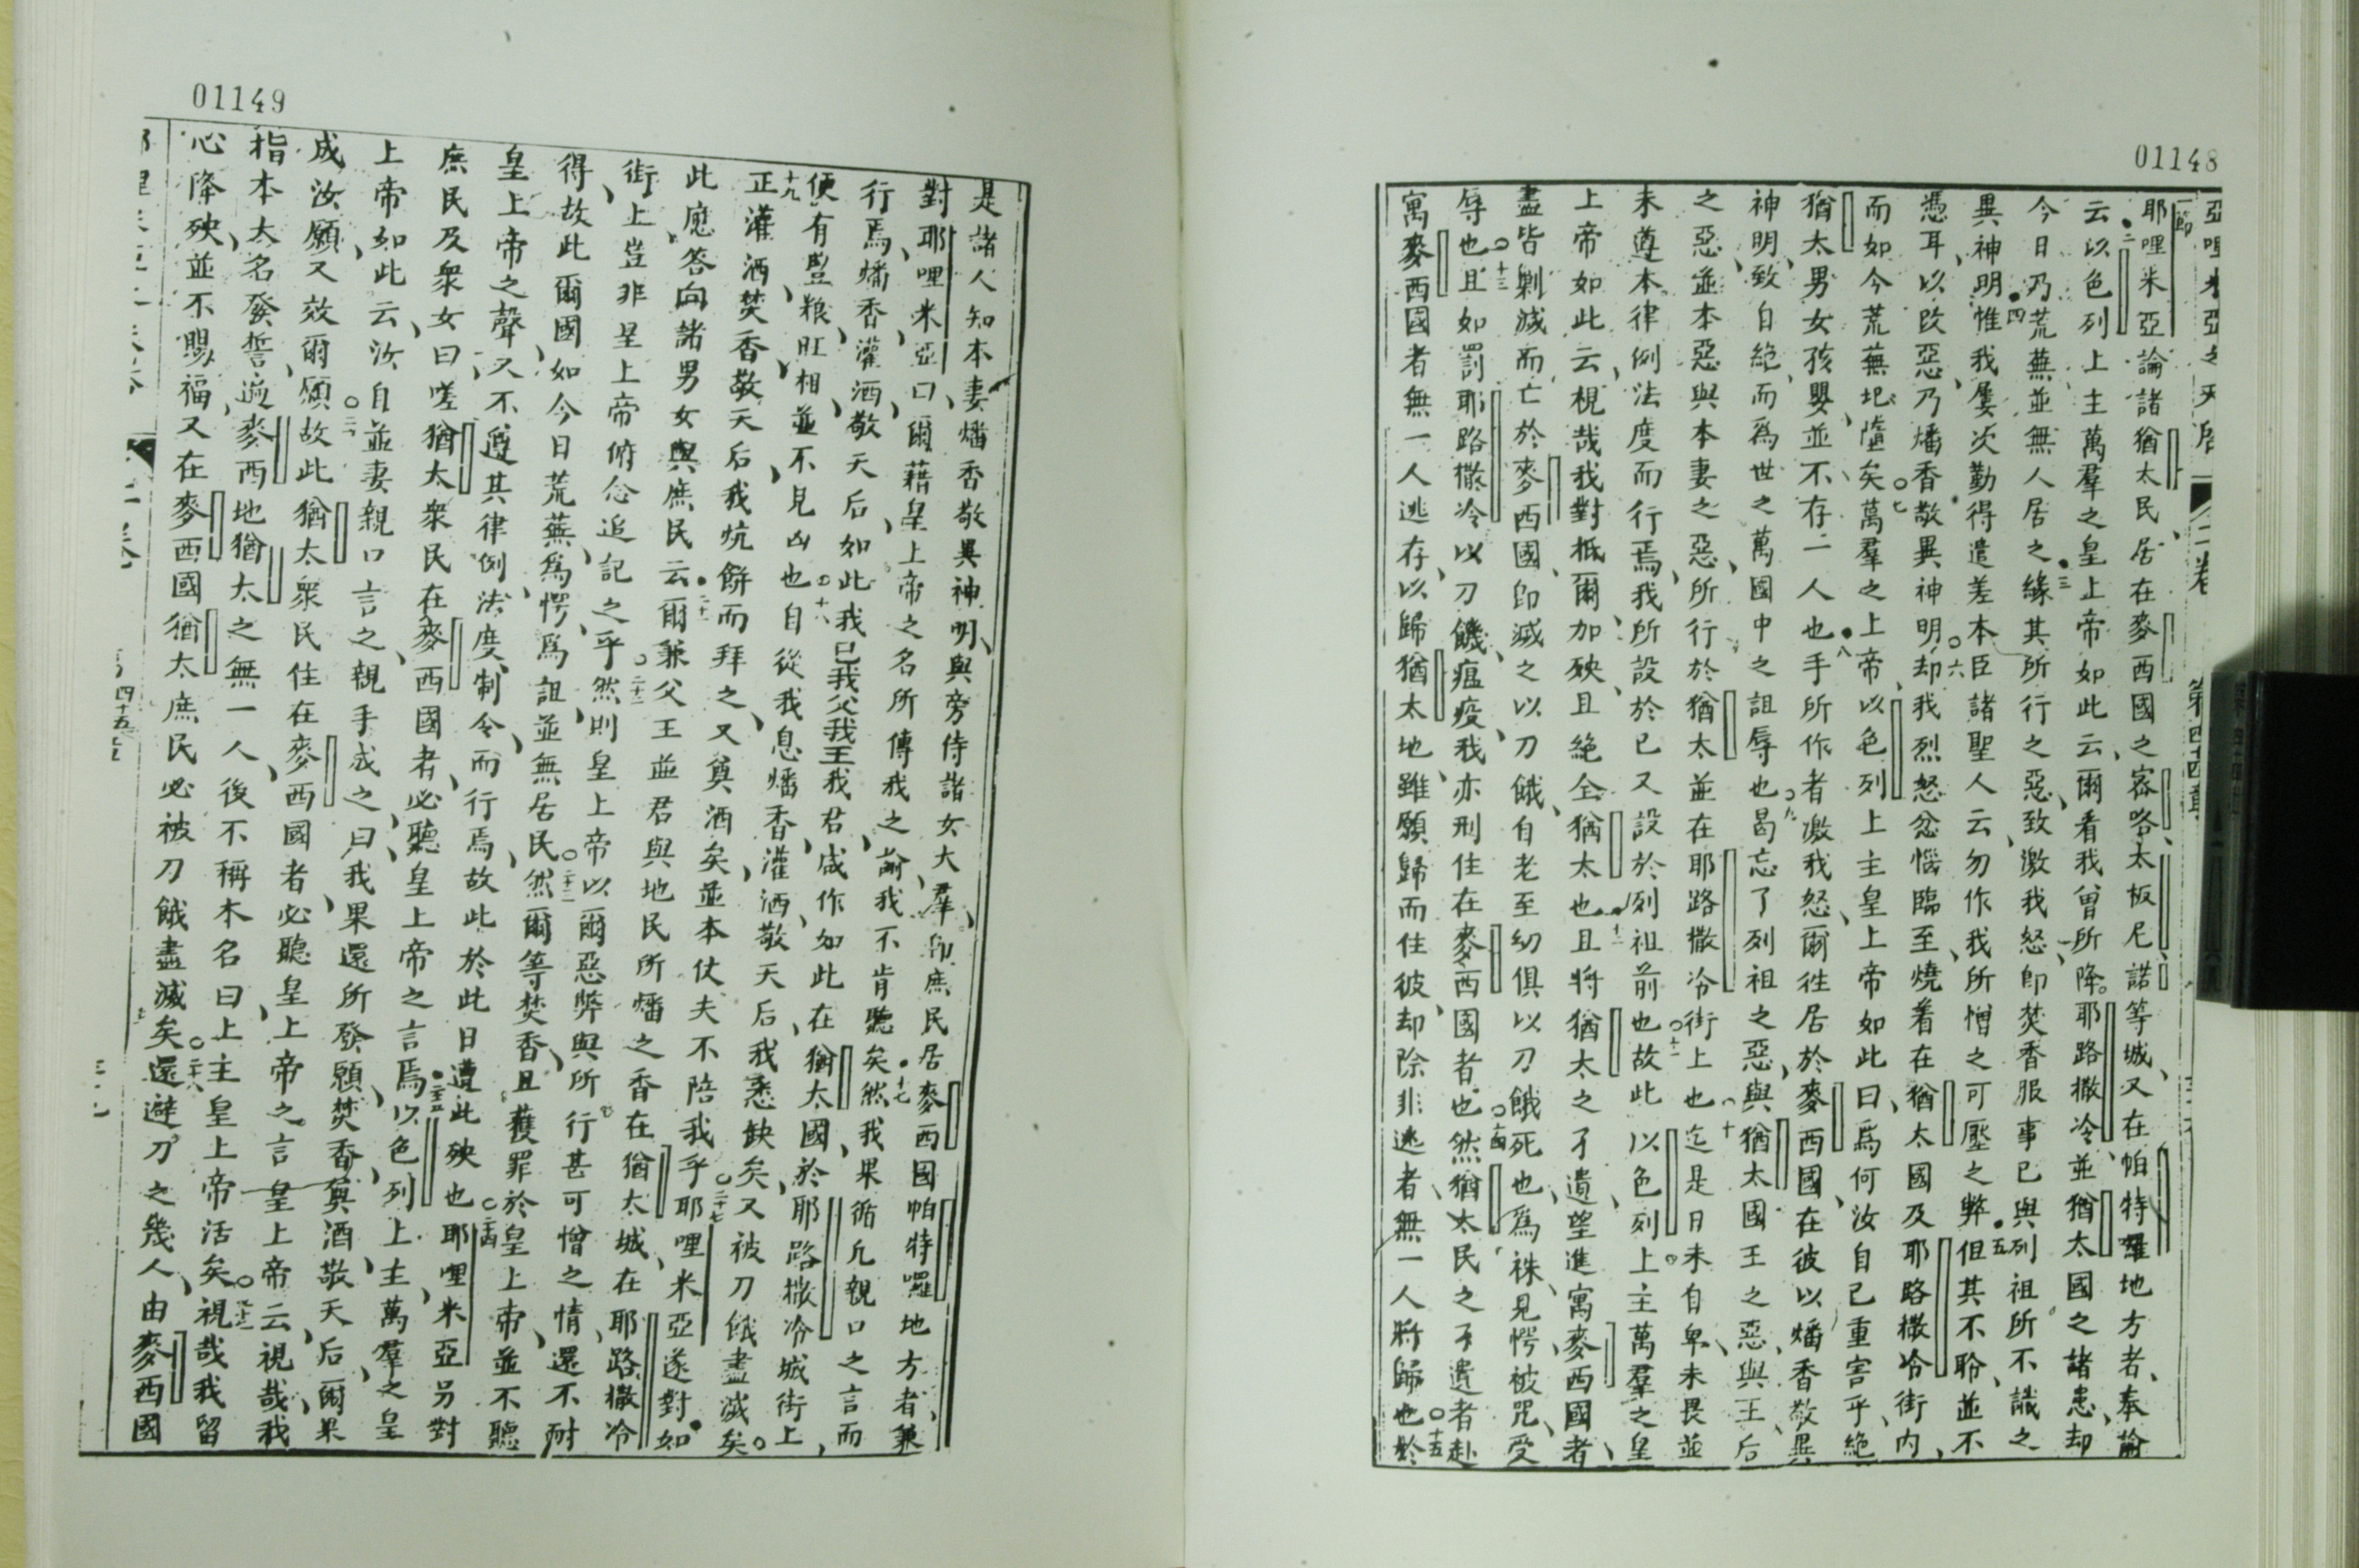 01148
耶哩米亞論諸猶太民居在麥西國之
等城又在帕特囉地方者奉諭
二云以色列上主萬羣之皇上帝如此云爾看我曾所降耶路撒冷並猶太國之諸患却
今日乃荒蕪並無人居之三緣其所行之惡致激我怒即焚香服事已與列祖所不識之
異神明四惟我屢次勤得遣差本臣諸聖人云勿作我所憎之可壓之弊五但其不聆並不
憑耳以改惡乃燔香敬異神明六却我烈怒忿惱臨至燒着在猶太國及耶路撒冷街內
而如今荒蕪圯隨矣七萬羣之上帝以色列上主皇上帝如此曰爲何汝自己重害乎絕
猶太男女孩嬰並不存一人也八手所作者激我怒爾徃居於麥西國在彼以燔香敬異
神明致自絕而爲世之萬國中之詛辱也九曷忘了列祖之惡與猶太國王之惡與王后
之惡並本惡與本妻之惡所行於猶太並在耶路撒冷街上也十迄是日未自卑未畏並
未遵本律例法度而行焉我所設於已又設於列祖前也十一故此以色列上主萬羣之皇
上帝如此云視哉我對抵爾加殃且絕全猶太也十二且將猶太之孑遺望進寓麥西國者
盡皆剿滅而亡於麥西國即滅之以刀餓自老至幼俱以刀餓死也爲袾見愕被咒受
辱也十三且如罰耶路撒冷以刀饑瘟疫我亦刑住在麥西國者也十四然猶太民之孑遺者赴
寓麥西國者無一人逃存以歸猶太地雖願歸而住彼却除非逃者無一人將歸也十五於
01149
是諸人知本妻燔香敬異神明與旁侍諸女大羣即庶民居麥西國帕特囉地方者兼
對耶哩米亞曰十六爾藉皇上帝之名所傳我之諭我不肯聽矣十七然我果循凡親口之言而
行焉燔香灌酒敬天后如此我已我父我王我君咸作如此在猶太國於耶路撒冷城街上
便有豐粮旺相並不見凶也十八自從我息燔香灌酒敬天后我悉缺矣又被刀餓盡滅矣
十九正灌酒焚香敬天后我炕餅而拜之又奠酒矣並本仗夫不陪我乎二十耶哩米亞遂對如
此應答向諸男女與庶民云二十一爾兼父王並君與地民所燔之香在猶太城在耶路撒冷
街上豈非皇上帝俯念追記之乎二十二然則皇上帝以爾惡弊與所行甚可憎之情還不耐
得故此爾國如今日荒蕪爲愕爲詛並無居民二十三然爾等焚香且獲罪於皇上帝並不聽
皇上帝之聲又不遵其律例法度制令而行焉故此於此日遭此殃也二十四耶哩米亞另對
庶民及衆女曰嗟猶太衆民在麥西國者必聽皇上帝之言焉二十五以色列上主萬羣之皇
上帝如此云汝自並妻親口言之親手成之曰我果還所發願焚香奠酒敬天后爾果
成汝願又效爾願二十六故此猶太衆民住在麥西國者必聽皇上帝之言皇上帝云視哉我
指本太名發誓遍麥西地猶太之無一人後不稱本名曰上主皇上帝活矣二十七視哉我留
心降殃並不賜福又在麥西國猶太庶民必被刀餓盡滅矣二十八還避刀之幾人由麥西國